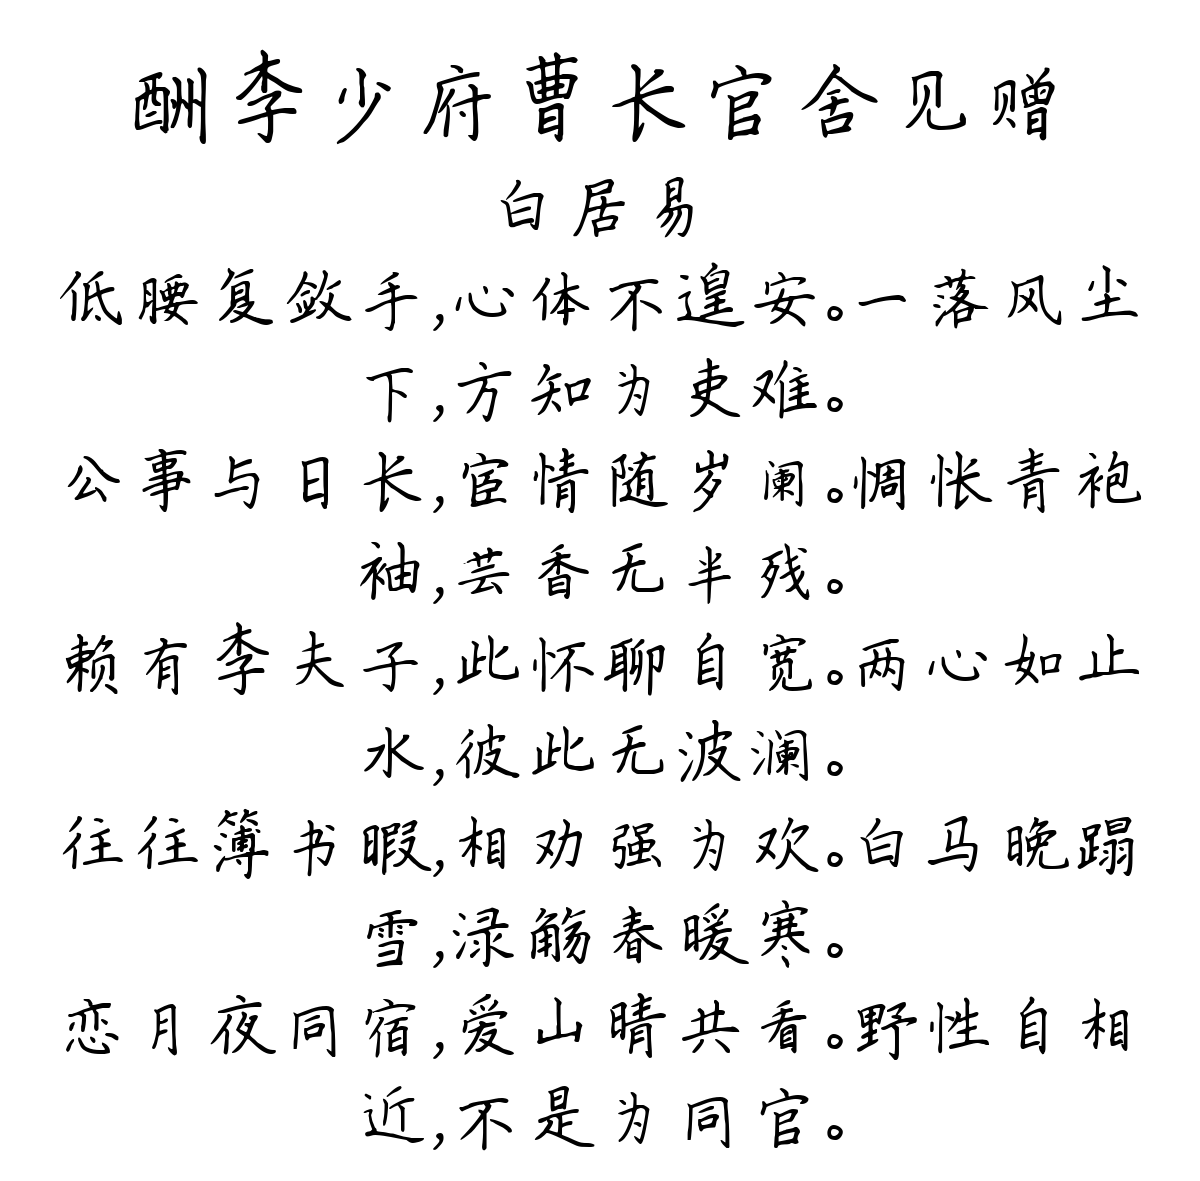 酬李少府曹长官舍见赠
白居易
低腰复敛手,心体不遑安。一落风尘
下,方知为吏难。
公事与日长,宦情随岁阑。惆怅青袍
袖,芸香无半残。
赖有李夫子,此怀聊自宽。两心如止
水,彼此无波澜。
往往簿书暇,相劝强为欢。白马晚蹋
雪,渌觞春暖寒。
恋月夜同宿,爱山晴共看。野性自相
近,不是为同官。